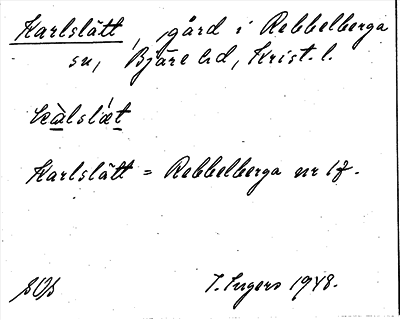 Karlslätt, gård i Rebbelberga
sn, Bjäre hd, Krist. l.
kàlslæ̀t
Karlslätt = Rebbelberga nr 17.
I. Ingers 1948.